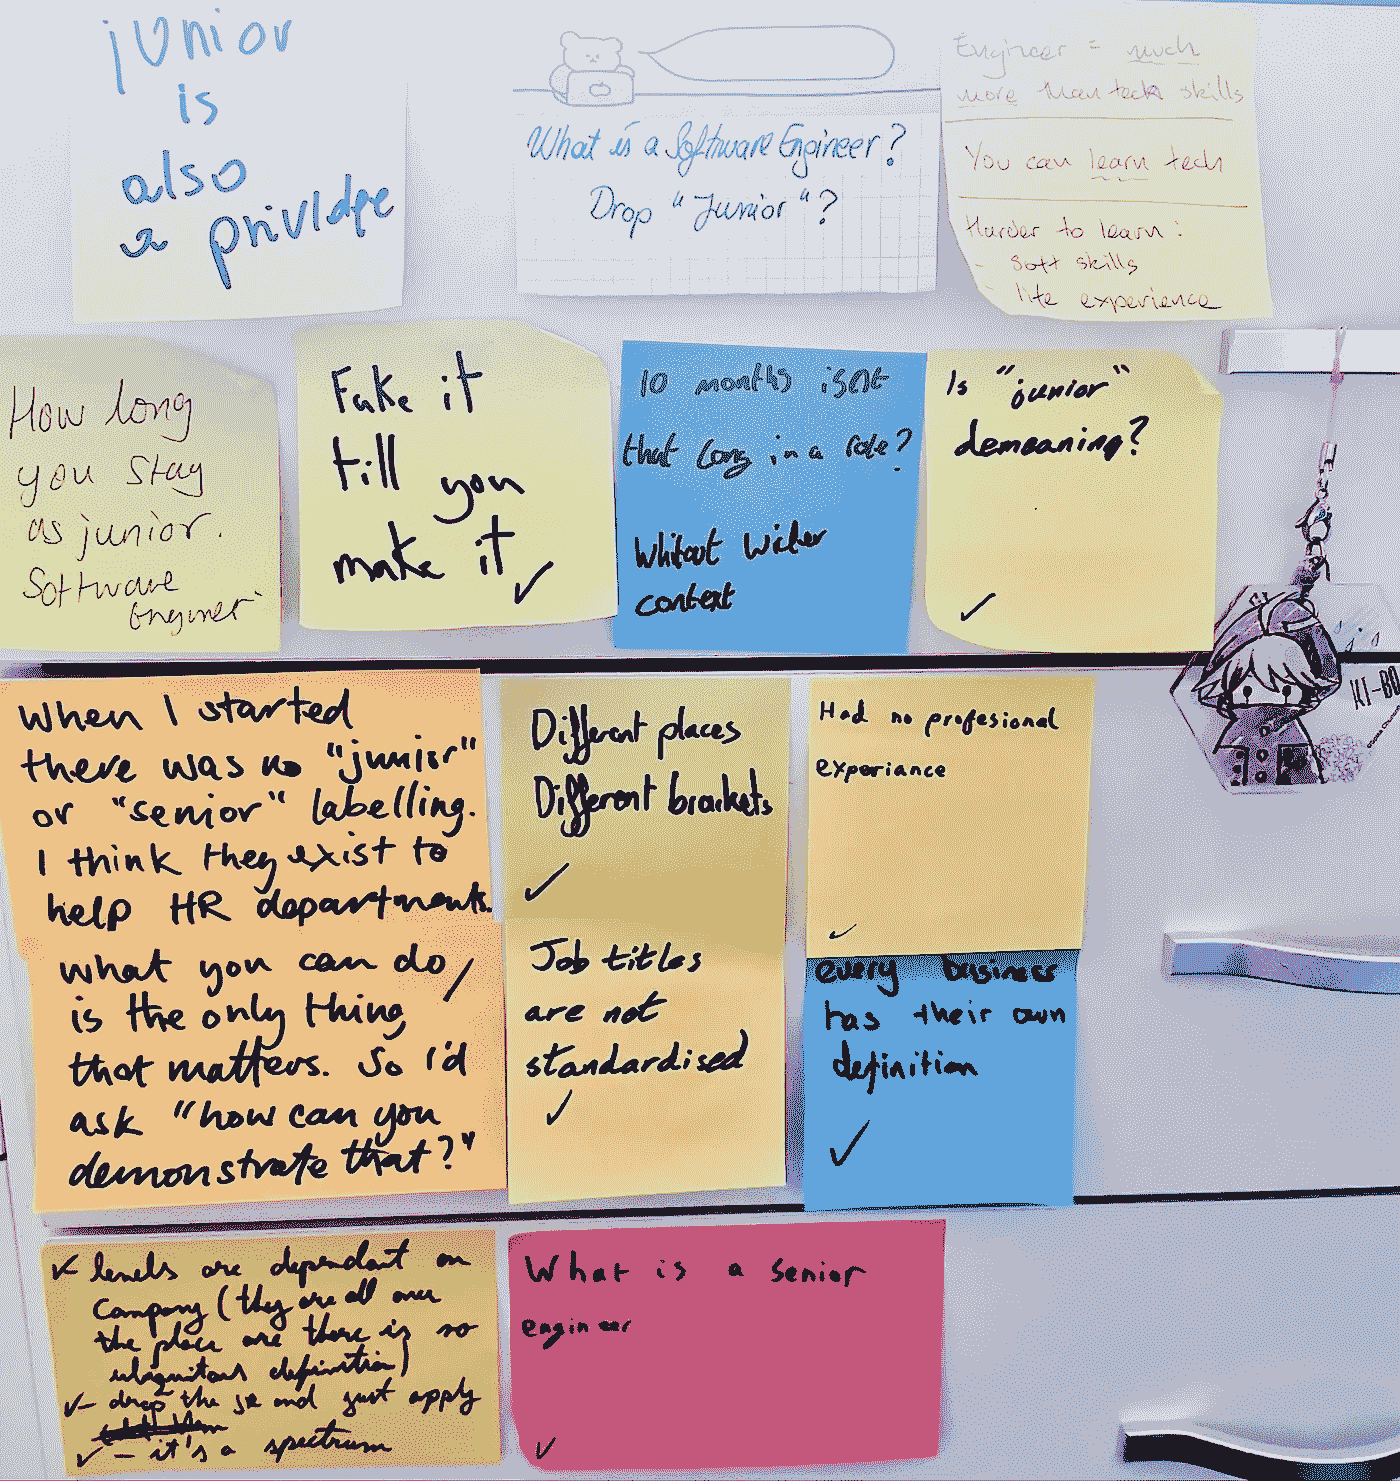 junior
is
also
a privldge
What is a Software Engineer?
Drop "Junior"?
Engineer = much
more than tech skills
You can learn tech
Harder to learn:
- soft skills
- life experience
How long
you stay
as junior.
Software
Engineer
Fake it
till you
make it
10 months isnt
that long in a role?
Whitout wider
context
Is "junior"
demeaning?
KI-BO
When I started
there was no "junior"
or "senior" labelling.
I think they exist to
help HR departments.
What you can do
is the only thing
that matters. So I'd
ask "how can you
demonstrate that?"
Different places
Different brackets
Job titles
are not
standardised
Had no profesional
experiance
every business
has their own
definition
levels are dependant on
Company (they are all over
the place are there is no
ubiquitous definition)
- drop the jr and just apply
- it's a spectrum
What is a senior
engineer